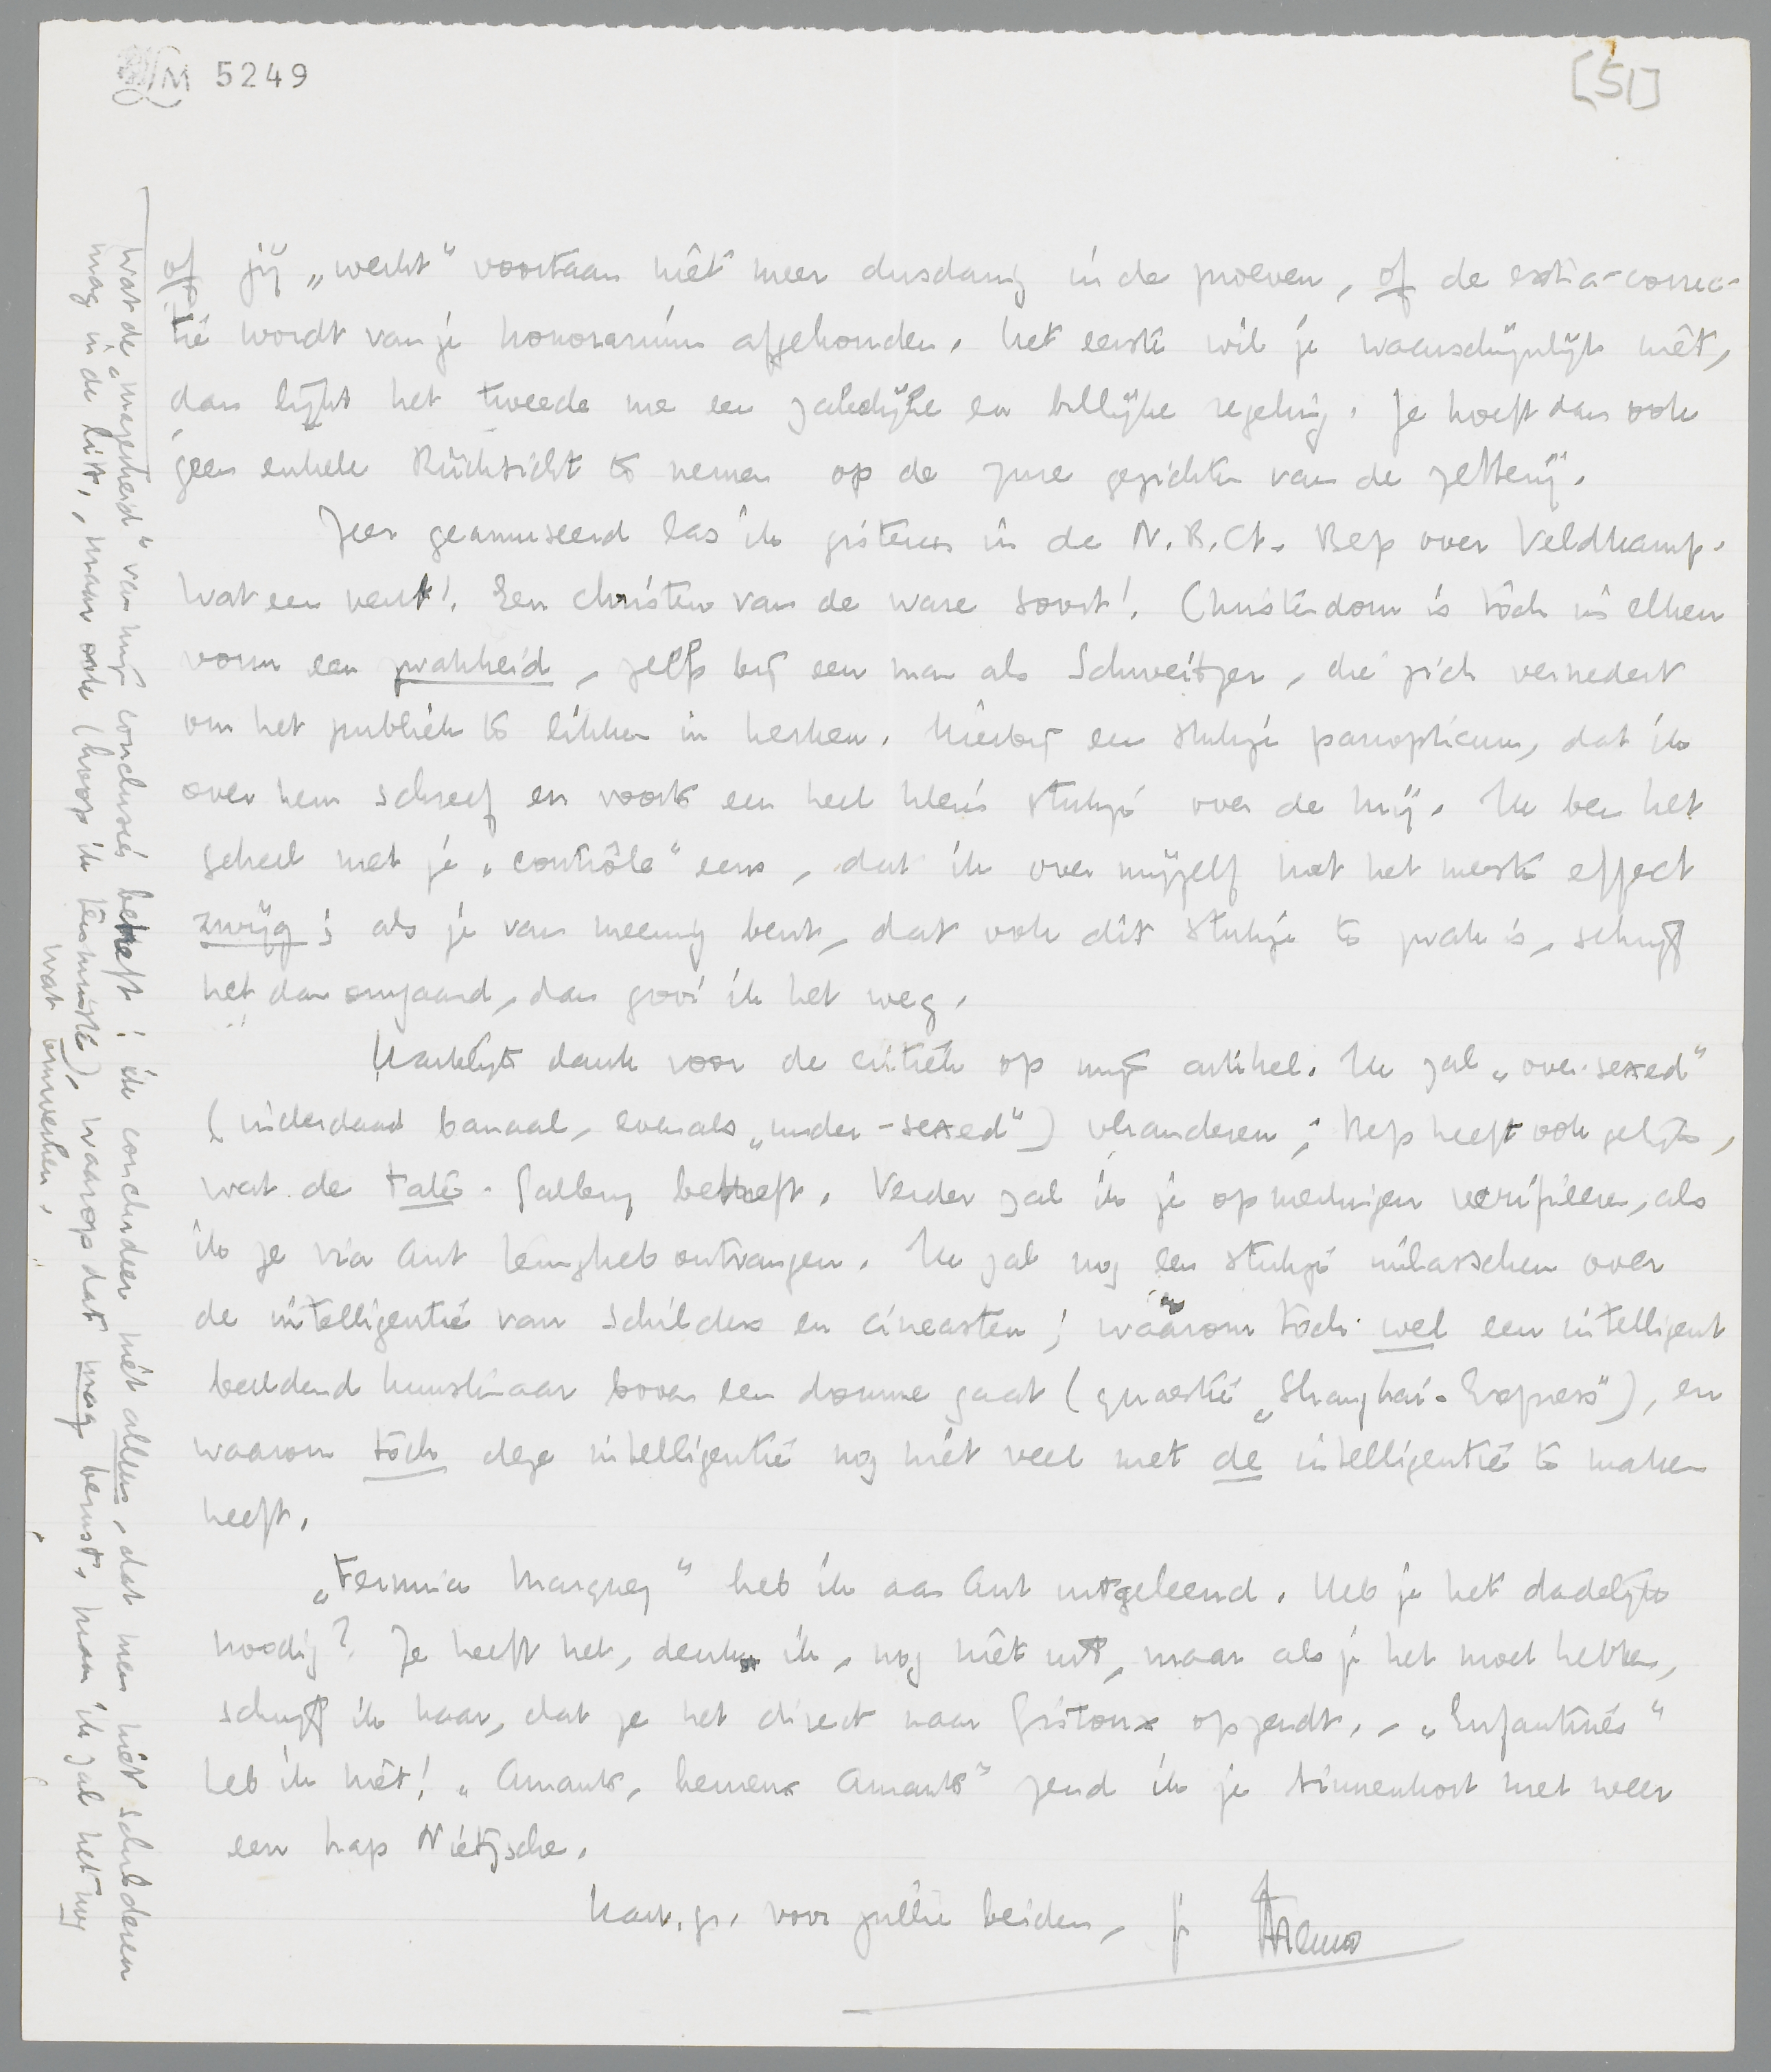 M 5249
[51]
of jij „werkt" voortaan niet meer dusdanig in de proeven, of de extra-correc-
tie wordt van je honorarium afgehouden. Het eerste wil je waarschijnlijk niet,
dan lijkt het tweede me een zakelijke en billijke regeling. Je hoeft dan ook
geen enkele Rücksicht te nemen op de zure gezichten van de zetterij.
Zeer geamuseerd las ik gisteren in de N.R.Ct. Bep over Veldkamp.
Wat een vent! Een christen van de ware soort! Christendom is tòch in elken
vorm een zwakheid, zelfs bij een man als Schweitzer, die zich vernedert
om het publiek te likken in kerken. Hierbij een stukje panopticum, dat ik
over hem schreef en voorts een heel klein stukje over de mij. Ik ben het
geheel met je „contrôle" eens, dat ik over mijzelf met het meeste effect
zwijg; als je van meening bent, dat ook dit stukje te zwak is, schrijf
het dan omgaand, dan gooi ik het weg.
Hartelijk dank voor de critiek op mijn artikel. Ik zal „over-sexed"
(inderdaad banaal, evenals „under-sexed") veranderen; Bep heeft ook gelijk,
wat de Tate-Gallery betreft. Verder zal ik je opmerkingen verifieeren, als
ik ze via Ant terug heb ontvangen. Ik zal nog een stukje inlasschen over
de intelligentie van schilders en cineasten; waarom tòch wel een intelligent
beeldend kunstenaar boven een domme gaat (quaestie „Shanghai-Express"), en
waarom tòch deze intelligentie nog niet veel met de intelligentie te maken
heeft.
„Fermina Marquez" heb ik aan Ant uitgeleend. Heb je het dadelijk
noodig? Ze heeft het, denk ik, nog niet uit, maar als je het moet hebben,
schrijf ik haar, dat ze het direct naar Gistoux opzendt. – „Enfantines"
heb ik niet! „Amants, heureux Amants" zend ik je binnenkort met weer
een hap Nietzsche.
Hart. gr. voor jullie beiden, je Menno
Wat de „magerheid" van mijn conclusies betreft: ik concludeer niet alleen, dat men niet schilderen
mag in de lift, maar ook (hoop ik tenminste), waarop dat mag berust. Maar ik zal het nog
wat omwerken.